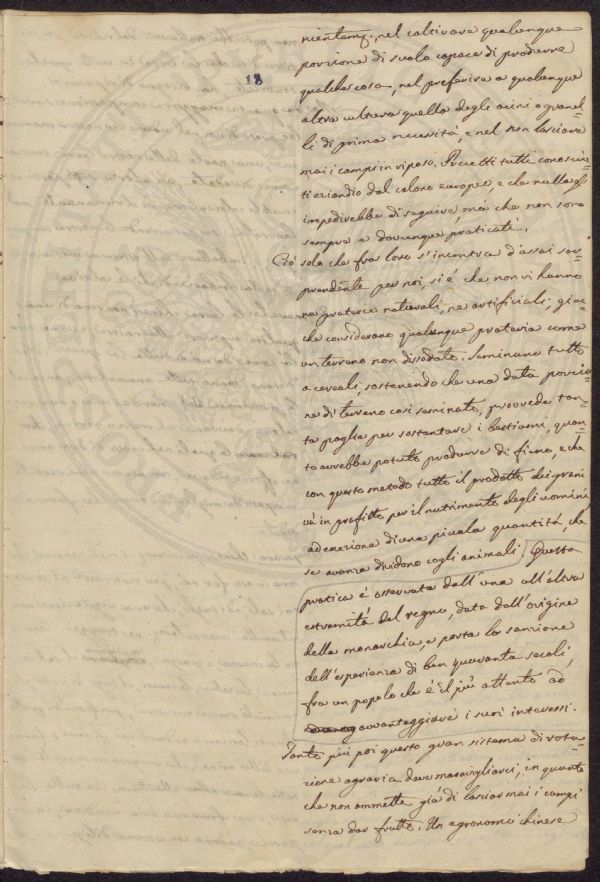 18
nientam.e, nel coltivare qualunque
porzione di suolo capace di produrre
qualche cosa, nel preferire a qualunque
altra cultura quella degli acini o granel-
li di prima necessità, e nel non lasciare
mai i campi in riposo. Precetti tutti conosciu-
ti eziandio dal colono europeo, e che nulla gl'
impedirebbe di seguire, ma che non sono
sempre e dovunque praticati.
Ciò solo che fra loro s'incontra d'assai sor-
prendente per noi, si è che non vi hanno
ne praterie naturali, ne artificiali; giac-
chè considerano qualunque prateria come
un terreno non dissodato. Seminano tutto
a cereali, sostenendo che una data porzio-
ne di terreno così seminato, provvede tan-
ta paglia per sostentare i bestiami, quan-
to avrebbe potuto produrre di fieno, e che
con questo metodo tutto il prodotto dei grani
và in profitto per il nutrimento degli uomini
ad eccezione di una piccola quantità, che
se avanza dividono cogli animali. Questa
pratica è osservata dall'una all'altra
estremità del regno, data dall'origine
della monarchia, e porta la sanzione
dell'esperienza di ben quaranta secoli,
fra un popolo che è il più attento ad
avvantaggiare i suoi interessi.
Tanto più poi questo gran sistema di rota-
zione agraria deve maravigliarci, in quanto
che non ammette già di lasciar mai i campi
senza dar frutto. Un agronomo chinese